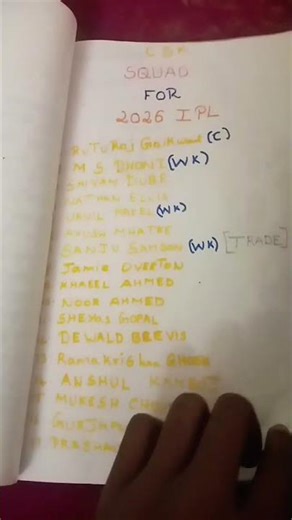 CSK
SQUAD
FOR
2026 IPL
RUTURAJ Gaikwad (C)
M S DHONI (WK)
SHIVAM DUBE
NATHAN ELLIS
URVIL PATEL (WK)
AYUSH MHATRE
SANJU SAMSON (WK) [TRADE]
Jamie OVERTON
KHALEEL AHMED
NOOR AHMED
SHEYAS GOPAL
DEWALD BREVIS
Ramakrishna GHOSH
ANSHUL KAMBOJ
MUKESH
GURJAP
PRASHA